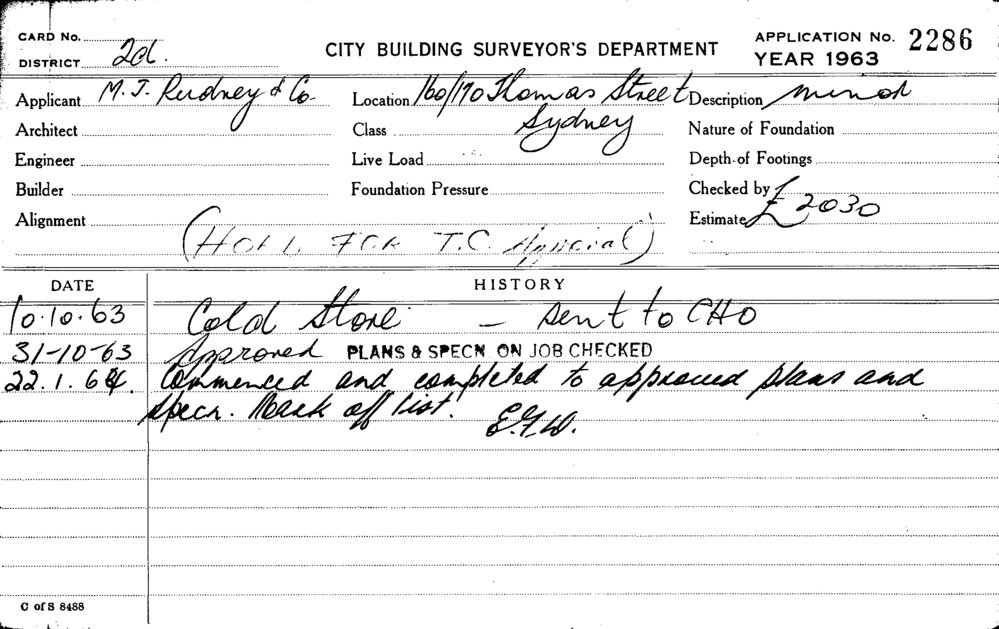 CARD No.
DISTRICT 2d.
CITY BUILDING SURVEYOR'S DEPARTMENT
APPLICATION No. 2286
YEAR 1963
Applicant M. J. Rudney & Co. Location 160/170 Thomas Street Description minor
Sydney
Architect Class Nature of Foundation
Engineer Live Load Depth of Footings
Builder Foundation Pressure Checked by
Alignment Estimate £2030
(HOLD FOR T.C. Approval)
DATE HISTORY
10.10.63 Cold Store - sent to CHO
31-10-63 Approved PLANS & SPECN ON JOB CHECKED
22.1.64. Commenced and completed to approved plans and
specn. Mark off list. E.G.W.
C of S 8488